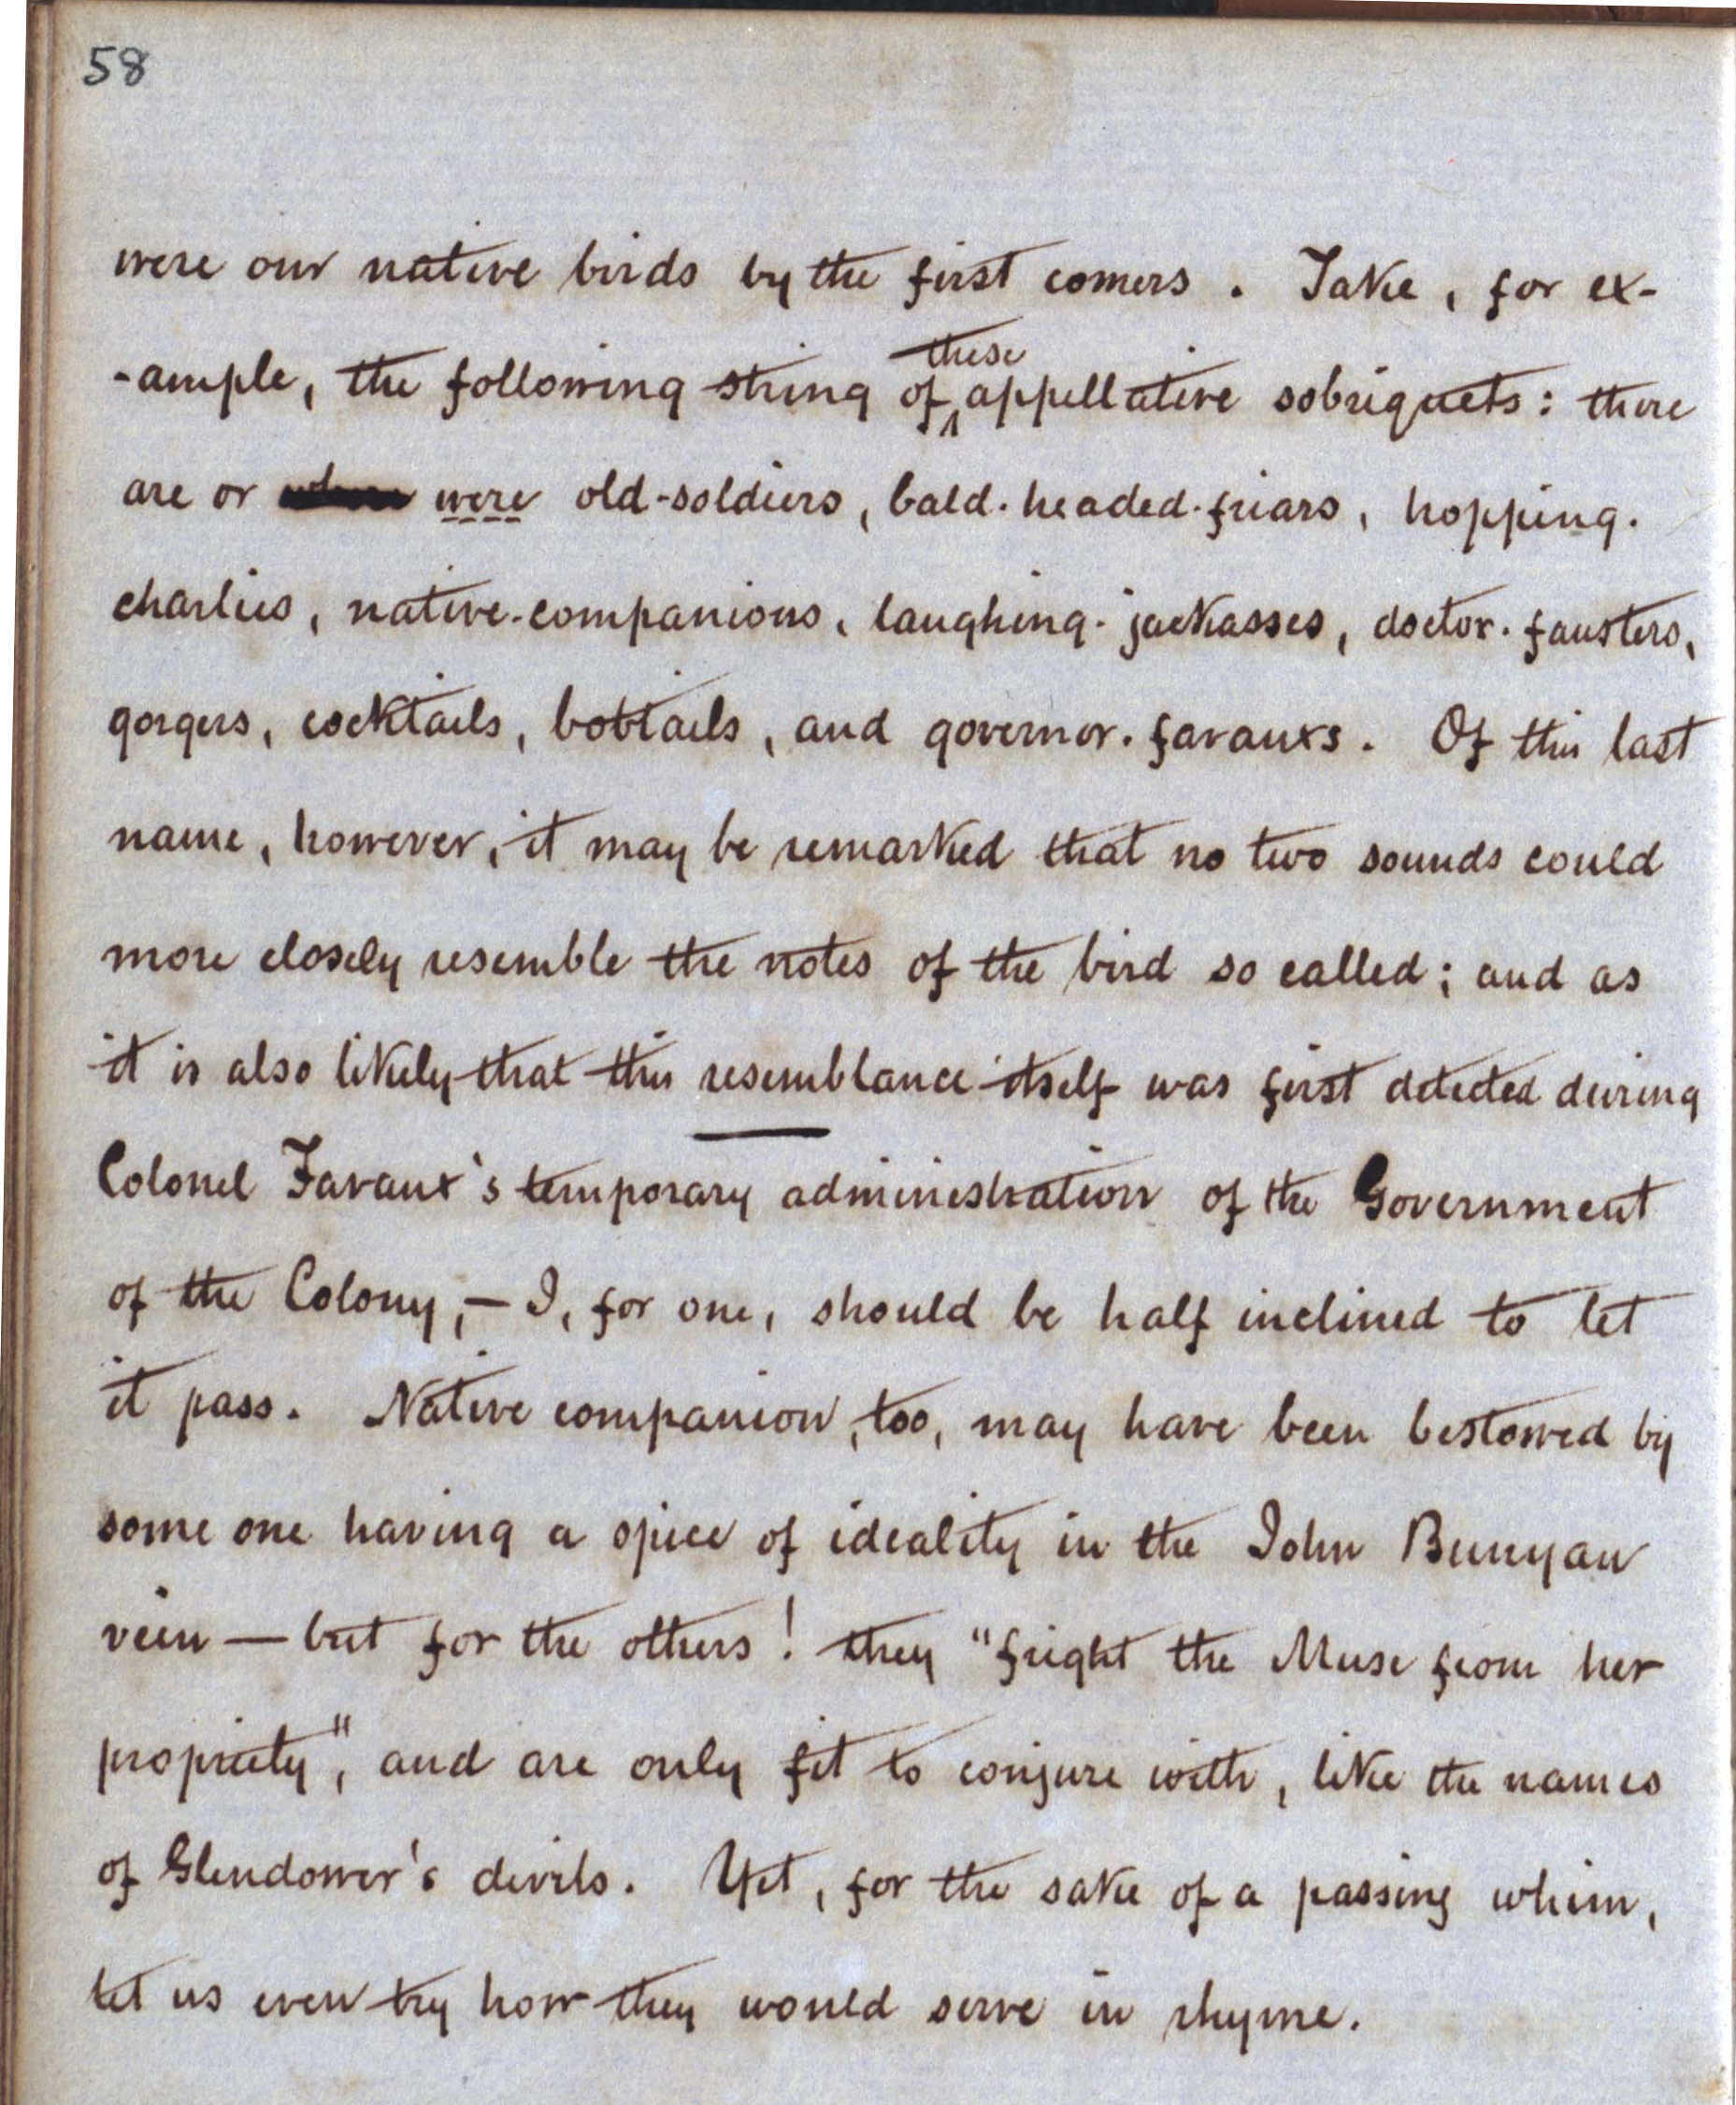 58
were our native birds by the first comers. Take, for ex-
-ample, the following string of these appellative sobriquets: there
are or were old-soldiers, bald-headed-friars, hopping-
charlies, native-companions, laughing-jackasses, doctor-fausters,
gorgers, cocktails, bobtails, and governor-favauxs. Of this last
name, however, it may be remarked that no two sounds could
more closely resemble the notes of the bird so called; and as
it is also likely that this resemblance itself was first detected during
Colonel Favaux's temporary administration of the Government
of the Colony,— I, for one, should be half inclined to let
it pass. Native companion, too, may have been bestowed by
some one having a spice of ideality in the John Bunyan
vein — but for the others! they "fright the Muse from her
propriety", and are only fit to conjure with, like the names
of Glendower's divils. Yet, for the sake of a passing whim,
let us even try how they would serve in rhyme.